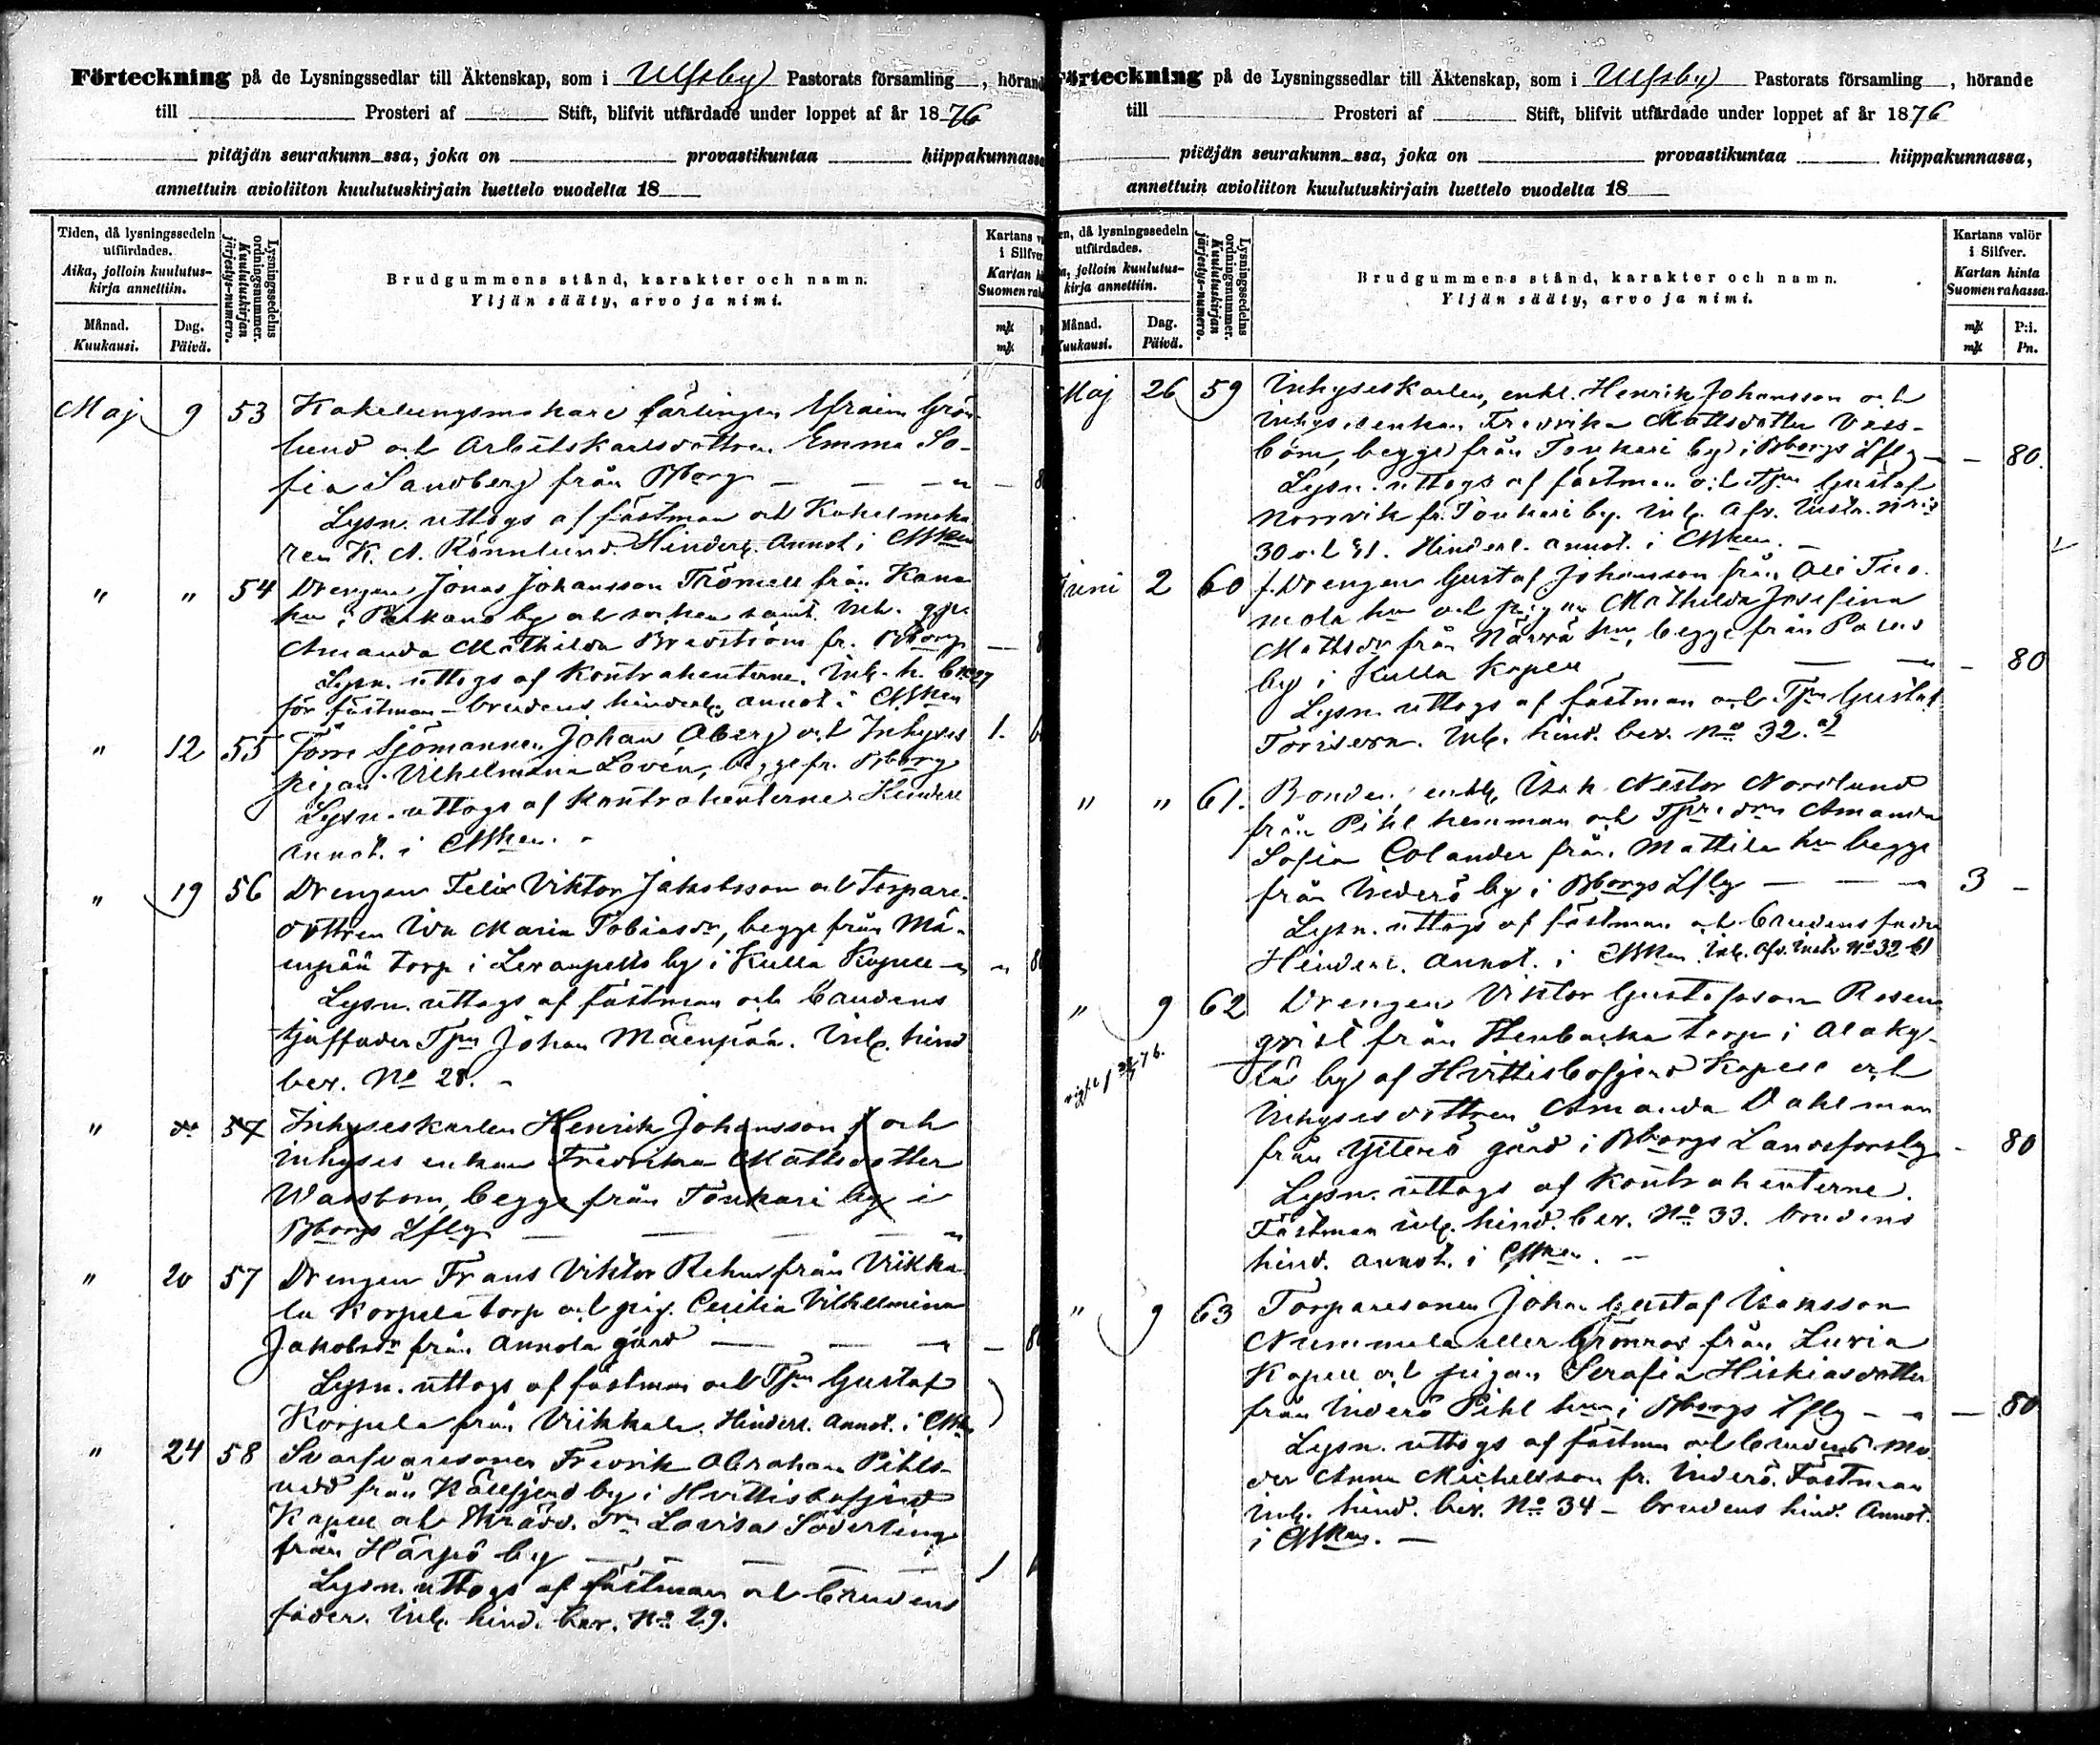 Förteckning på de Lysningssedlar till Äktenskap, som i Ulfsby Pastorats församling , hörand
till Prosteri af Stift, blifvit utfärdade under loppet af år 1876
pitäjän seurakunn ssa, joka on provastikuntaa hiippakunnassa
annettuin avioliiton kuulutuskirjain luettelo vuodelta 18
Tiden, då lysningssedeln utfärdades.
Aika, jolloin kuulutus-kirja annettiin.
Månad. Kuukausi.
Dag. Päivä.
Lysningssedelns ordningsnummer.
Kuulutuskirjan järjestys-numero.
Brudgummens stånd, karakter och namn.
Yljän sääty, arvo ja nimi.
Kartans
i Silfver
Kartan
Suomen
mk
mk
Maj 9 53 Kakelungsmakare lärlingen Efraim Grön-
lund och Arbetskarlsdottren Emma So-
fia Sandberg från Bborg
Lysn. uttogs af fästman och Kakelmaka
ren K. A. Rönnlund. Hindersl. Annot i
" " 54 Drengen Jonas Johansson Trömell från Kana
by och socken samt Inh. 
Amanda Mathilda Bredström fr. Bborg
Lysn. uttogs af Kontrahenterne.
för fästman – brudens annot i
" 12 55 Förre Sjömannen Johan Åberg och Inhyses 1.
pigan Vilhelmina Lovén, begge fr. Bborg
Lysn. uttogs af Kontrahenterne. Hindersl
annot. i
" 19 56 Drengen Felix Viktor Jakobsson och Torpare-
dottren Ida Maria Tobiasdr, begge från Mä-
enpää torp i Levanpelto by i Kulla Kapell
Lysn. uttogs af fästman och brudens
Tpm Johan Mäenpää. Inl. hind
bev. No 28.
" do 57 Inhyseskarlen Henrik Johansson och
inhyses enkan Fredrika Mattsdotter
Wassbom, begge från Torkari by i
Bborgs Lflg
" 20 57 Drengen Frans Viktor Rehn från Viikka-
la Korpela torp och pig. Cecilia Vilhelmina
Jakobsdr från Annola gård
Lysn. uttogs af fästman och Tpm Gustaf
Korpela från Viikkala. Hindersl. Annot. i
" 24 58 Svarfvaresonen Fredrik Abraham Pihls-
från Kållfjerd by i Hvittisbofjerd
Kapell och Lovisa Söderling
från Härpö by
Lysn. uttogs af fästman och brudens
fader. Inl. hind. bev. No 29.
Förteckning på de Lysningssedlar till Äktenskap, som i Ulfsby Pastorats församling , hörande
till Prosteri af Stift, blifvit utfärdade under loppet af år 1876
pitäjän seurakunn ssa, joka on provastikuntaa hiippakunnassa,
annettuin avioliiton kuulutuskirjain luettelo vuodelta 18
en, då lysningssedeln utfärdades.
a, jolloin kuulutus-kirja annettiin.
Månad. Kuukausi.
Dag. Päivä.
Lysningssedelns ordningsnummer.
Kuulutuskirjan järjestys-numero.
Brudgummens stånd, karakter och namn.
Yljän sääty, arvo ja nimi.
Kartans valör
i Silfver.
Kartan hinta
Suomen rahassa.
mk P:i.
mk Pn.
Maj 26 59 Inhyseskarlen, enkl. Henrik Johansson och
Inhysesenkan Fredrika Mattsdotter Vass-
bom, begge från Torkari by i Bborgs Lflg – 80.
Lysn. uttogs af fästman och Tpm Gustaf
Norrvik fr. Torkari by. Inl. Afv. 
30 och 31. Hindersl. annot. i
Juni 2 60 f. Drengen Gustaf Johansson från Ali Tuo-
mola hn och pigan Mathilda Josefina
Mattsdr från Närvä hn, begge från Palus
by i Kulla Kapell – 80
Lysn. uttogs af fästman och Tpm Gustaf
Inl. hind. bev. No 32.
" " 61. Bonden, enkl. Isak Nestor Nordlund
från Pihl hemman och Amanda
Sofia Colander från Mattila hn begge
från Inderö by i Bborgs Lflg 3 –
Lysn. uttogs af fästman och brudens fader
Hindersl. Annot. i Inl. Afv. No 32
" 9 62 Drengen Viktor Gustafsson Rosen-
qvist från Stenbacka torp i Alaky-
lä by af Hvittisbofjerd Kapell och
Inhysesdottren Amanda Dahlman
från Ytterö gård i Bborgs Landsforslg – 80
Lysn. uttogs af Kontrahenterne.
Fästman inl. hind. bev. No 33. brudens
hind. annot. i
" 9 63 Torparesonen Johan Gustaf Isaksson
Nummela eller Grönroos från Luvia
Kapell och pigan Serafia Hiskiasdotter
från Inderö Pihl hn i Bborgs Lflg – 80
Lysn. uttogs af fästman och brudens mo-
der Anna Michelsson fr. Inderö. Fästman
inl. hind. bev. No 34 – brudens hind. Annot.
i